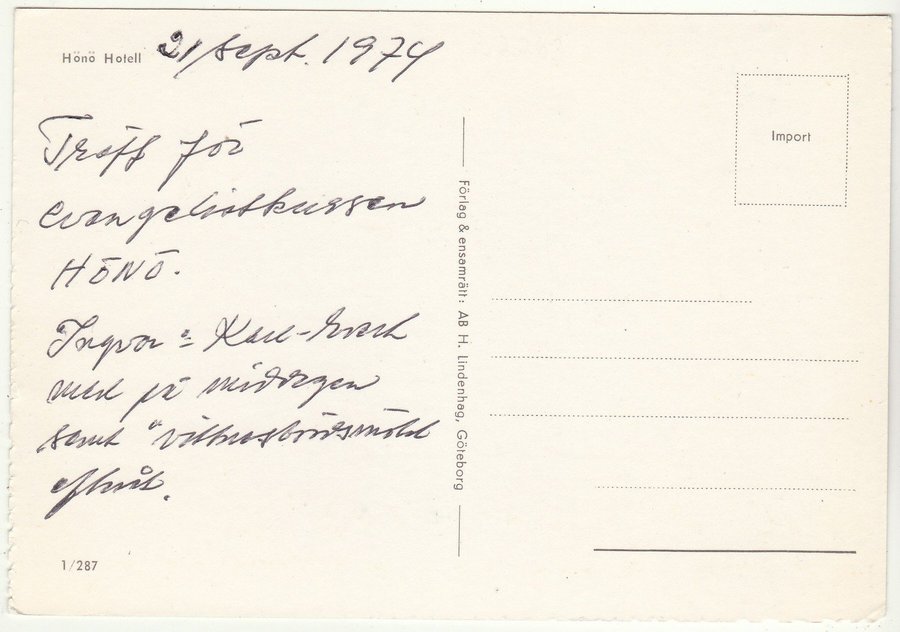 Hönö Hotell
21/Sept. 1974
Träff för
evangelistkurssen
HÖNÖ.
Ingvar = Karl-Evert
med på middagen
samt "vittnesbördsmötet
efteråt.
1/287
Förlag & ensamrätt: AB H. Lindenhag, Göteborg
Import